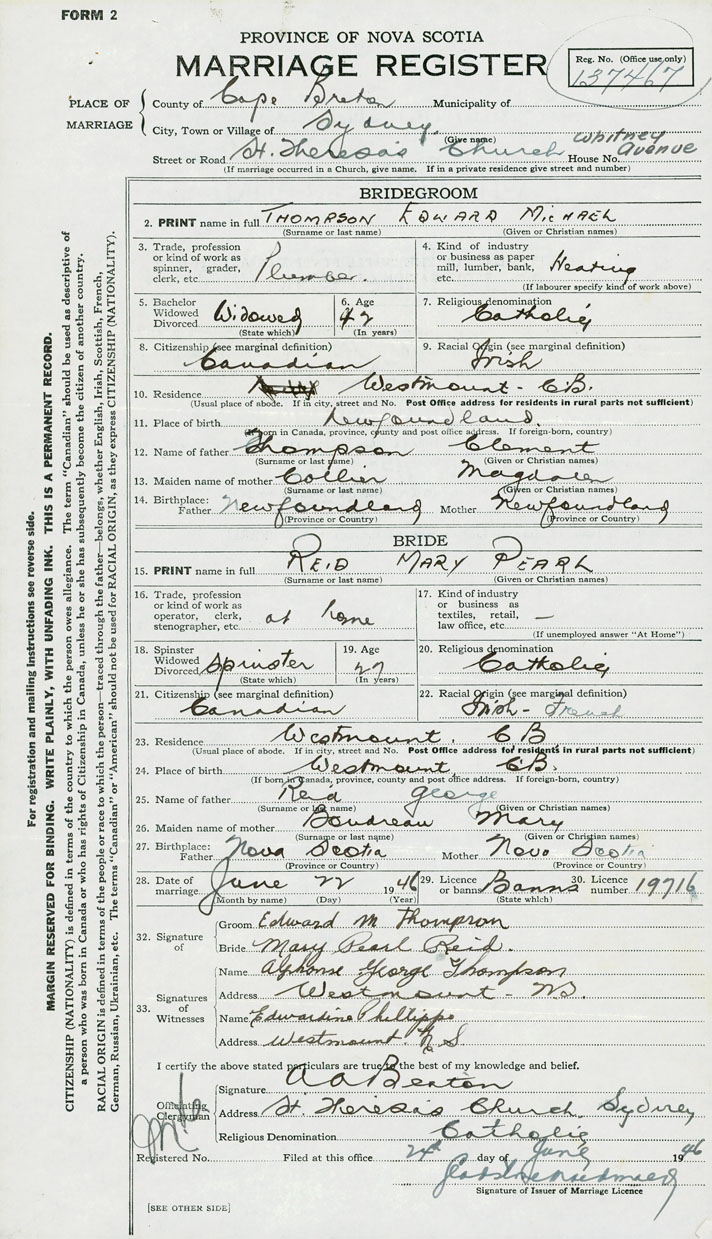 FORM 2
PROVINCE OF NOVA SCOTIA
MARRIAGE REGISTER
Reg. No. (Office use only)
137467
PLACE OF MARRIAGE
County of Cape Breton Municipality of
City, Town or Village of Sydney
(Give name)
Street or Road St. Theresa's Church House No. Whitney Avenue
(If marriage occurred in a Church, give name. If in a private residence give street and number)
BRIDEGROOM
2. PRINT name in full THOMPSON EDWARD MICHAEL
(Surname or last name) (Given or Christian names)
3. Trade, profession or kind of work as spinner, grader, clerk, etc. Plumber.
4. Kind of industry or business as paper mill, lumber, bank, etc. Heating
(If labourer specify kind of work above)
5. Bachelor Widowed Divorced Widowed
(State which)
6. Age 42
(In years)
7. Religious denomination Catholic
8. Citizenship (see marginal definition) Canadian
9. Racial Origin (see marginal definition) Irish
10. Residence Westmount - C.B.
(Usual place of abode. If in city, street and No. Post Office address for residents in rural parts not sufficient)
11. Place of birth Newfoundland.
(If born in Canada, province, county and post office address. If foreign-born, country)
12. Name of father Thompson Clement
(Surname or last name) (Given or Christian names)
13. Maiden name of mother Collier Magdalen
(Surname or last name) (Given or Christian names)
14. Birthplace: Father Newfoundland Mother Newfoundland
(Province or Country) (Province or Country)
BRIDE
15. PRINT name in full REID MARY PEARL
(Surname or last name) (Given or Christian names)
16. Trade, profession or kind of work as operator, clerk, stenographer, etc at home
17. Kind of industry or business as textiles, retail, law office, etc. —
(If unemployed answer "At Home")
18. Spinster Widowed Divorced Spinster
(State which)
19. Age 27
(In years)
20. Religious denomination Catholic
21. Citizenship (see marginal definition) Canadian
22. Racial Origin (see marginal definition) Irish - French
23. Residence Westmount. C B
(Usual place of abode. If in city, street and No. Post Office address for residents in rural parts not sufficient)
24. Place of birth Westmount, C.B.
(If born in Canada, province, county and post office address. If foreign-born, country)
25. Name of father Reid George
(Surname or last name) (Given or Christian names)
26. Maiden name of mother Boudreau Mary
(Surname or last name) (Given or Christian names)
27. Birthplace: Father Nova Scotia Mother Nova Scotia
(Province or Country) (Province or Country)
28. Date of marriage June 22 1946
(Month by name) (Day) (Year)
29. Licence or banns Banns
(State which)
30. Licence number 19716
32. Signature of
Groom Edward M Thompson
Bride Mary Pearl Reid.
33. Signatures of Witnesses
Name Alphonse George Thompson
Address Westmount - N.S.
Name Edwardine Phillippo
Address Westmount. N S.
I certify the above stated particulars are true to the best of my knowledge and belief.
Officiating Clergyman
Signature A A Beaton
Address St. Theresa's Church. Sydney
Religious Denomination Catholic
Registered No. Filed at this office 24th day of June 1946
Signature of Issuer of Marriage Licence
[SEE OTHER SIDE]
For registration and mailing instructions see reverse side.
MARGIN RESERVED FOR BINDING. WRITE PLAINLY, WITH UNFADING INK. THIS IS A PERMANENT RECORD.
CITIZENSHIP (NATIONALITY) is defined in terms of the country to which the person owes allegiance. The term "Canadian" should be used as descriptive of
a person who was born in Canada or who has rights of Citizenship in Canada, unless he or she has subsequently become the citizen of another country.
RACIAL ORIGIN is defined in terms of the people or race to which the person—traced through the father—belongs, whether English, Irish, Scottish, French,
German, Russian, Ukrainian, etc. The terms "Canadian" or "American" should not be used for RACIAL ORIGIN, as they express CITIZENSHIP (NATIONALITY).